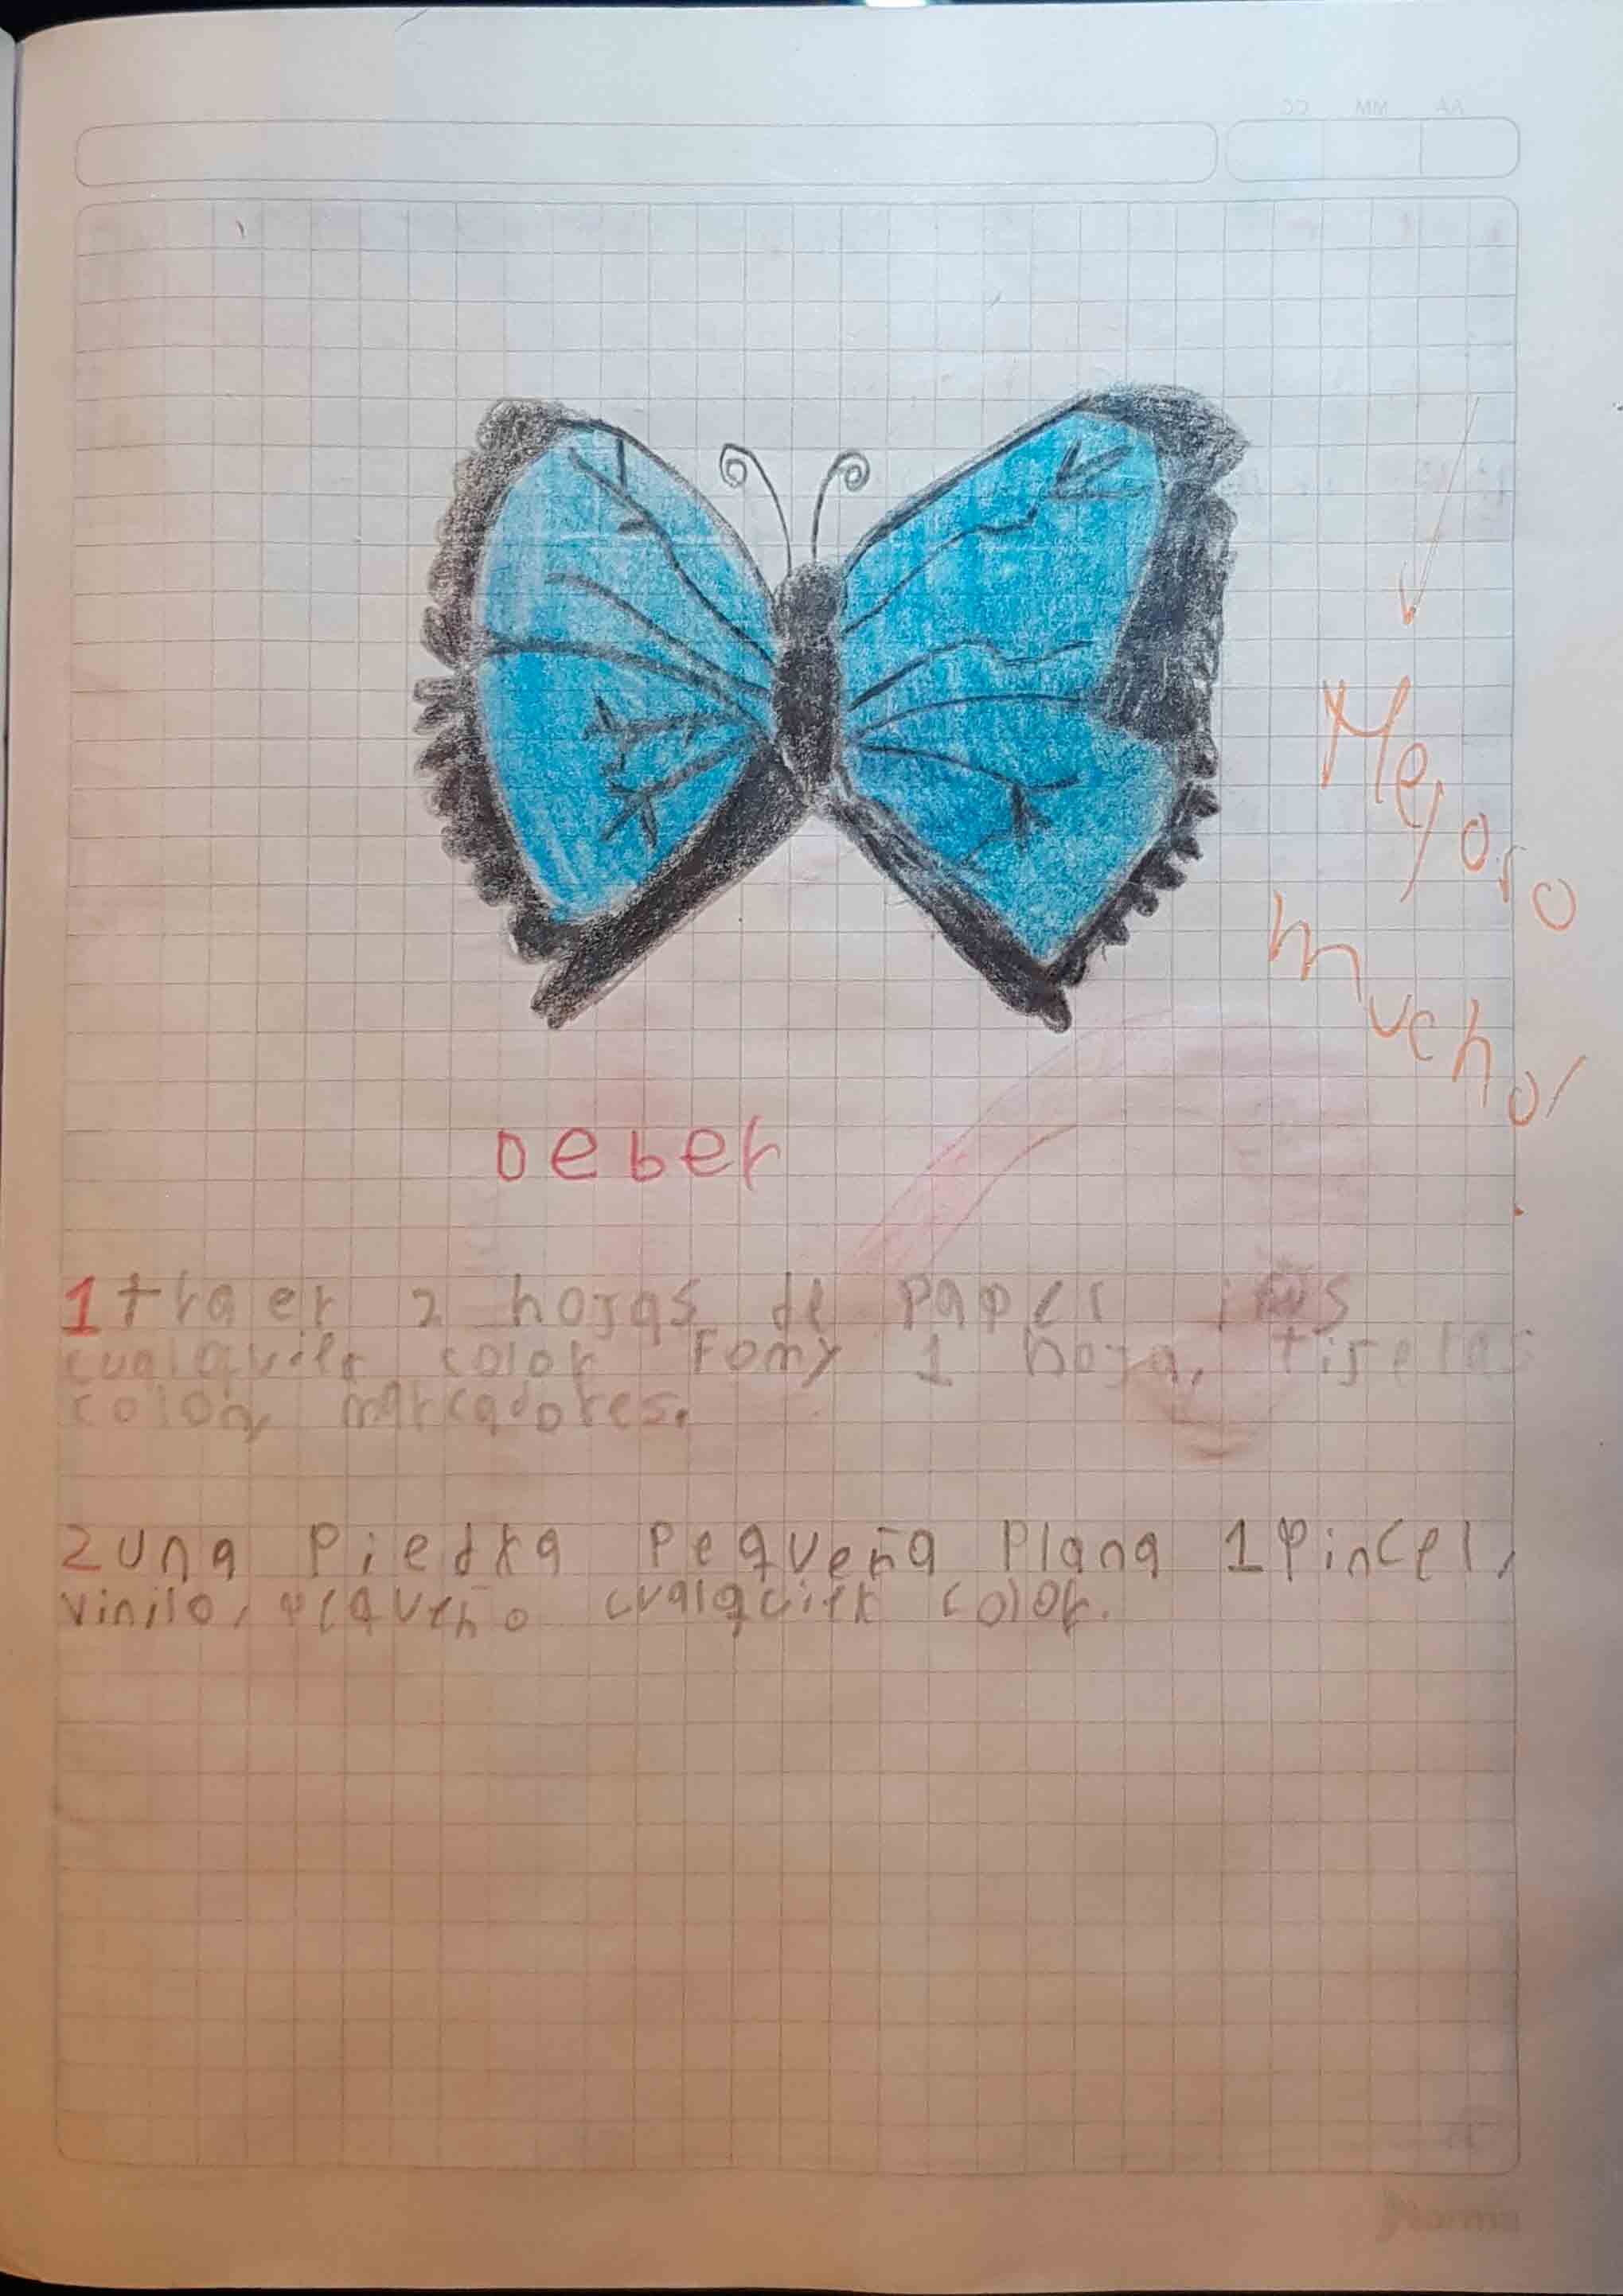 Mejoro
mucho/
Deber
1 traer 2 hojas de papel iris
cualquier color Fomy 1 hoja, tijelas
colon, marcadores.
2 una piedra pequeña plana 1 pincel,
vinilo, pequeño cualquier color.
norma